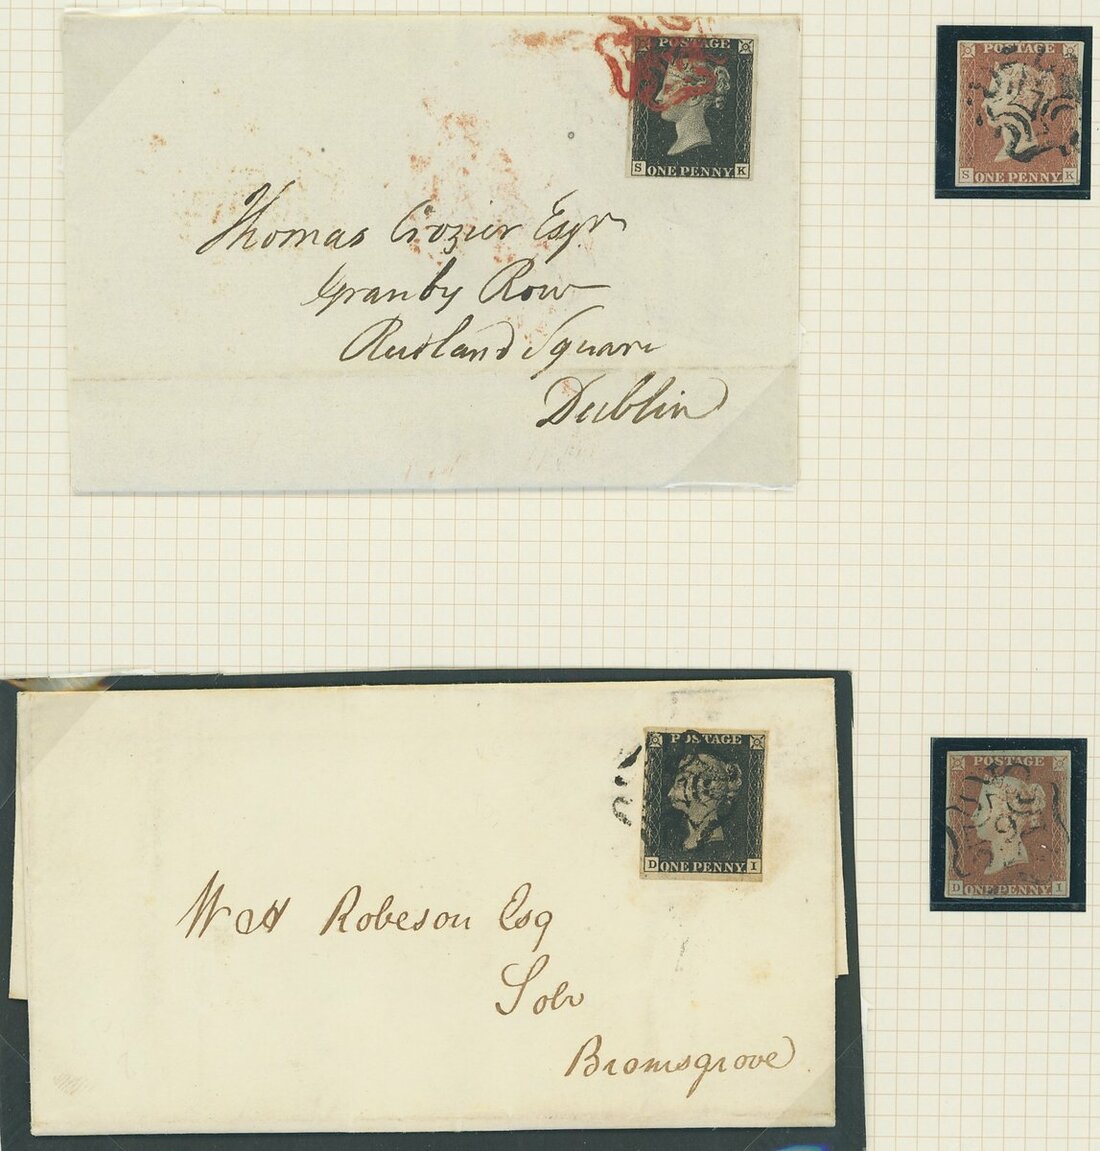 POSTAGE
S ONE PENNY K
Thomas Crozier Esqr
Granby Row
Rutland Square
Dublin
POSTAGE
S ONE PENNY K
POSTAGE
D ONE PENNY I
W H Robeson Esq
Solr
Bromsgrove
POSTAGE
D ONE PENNY I